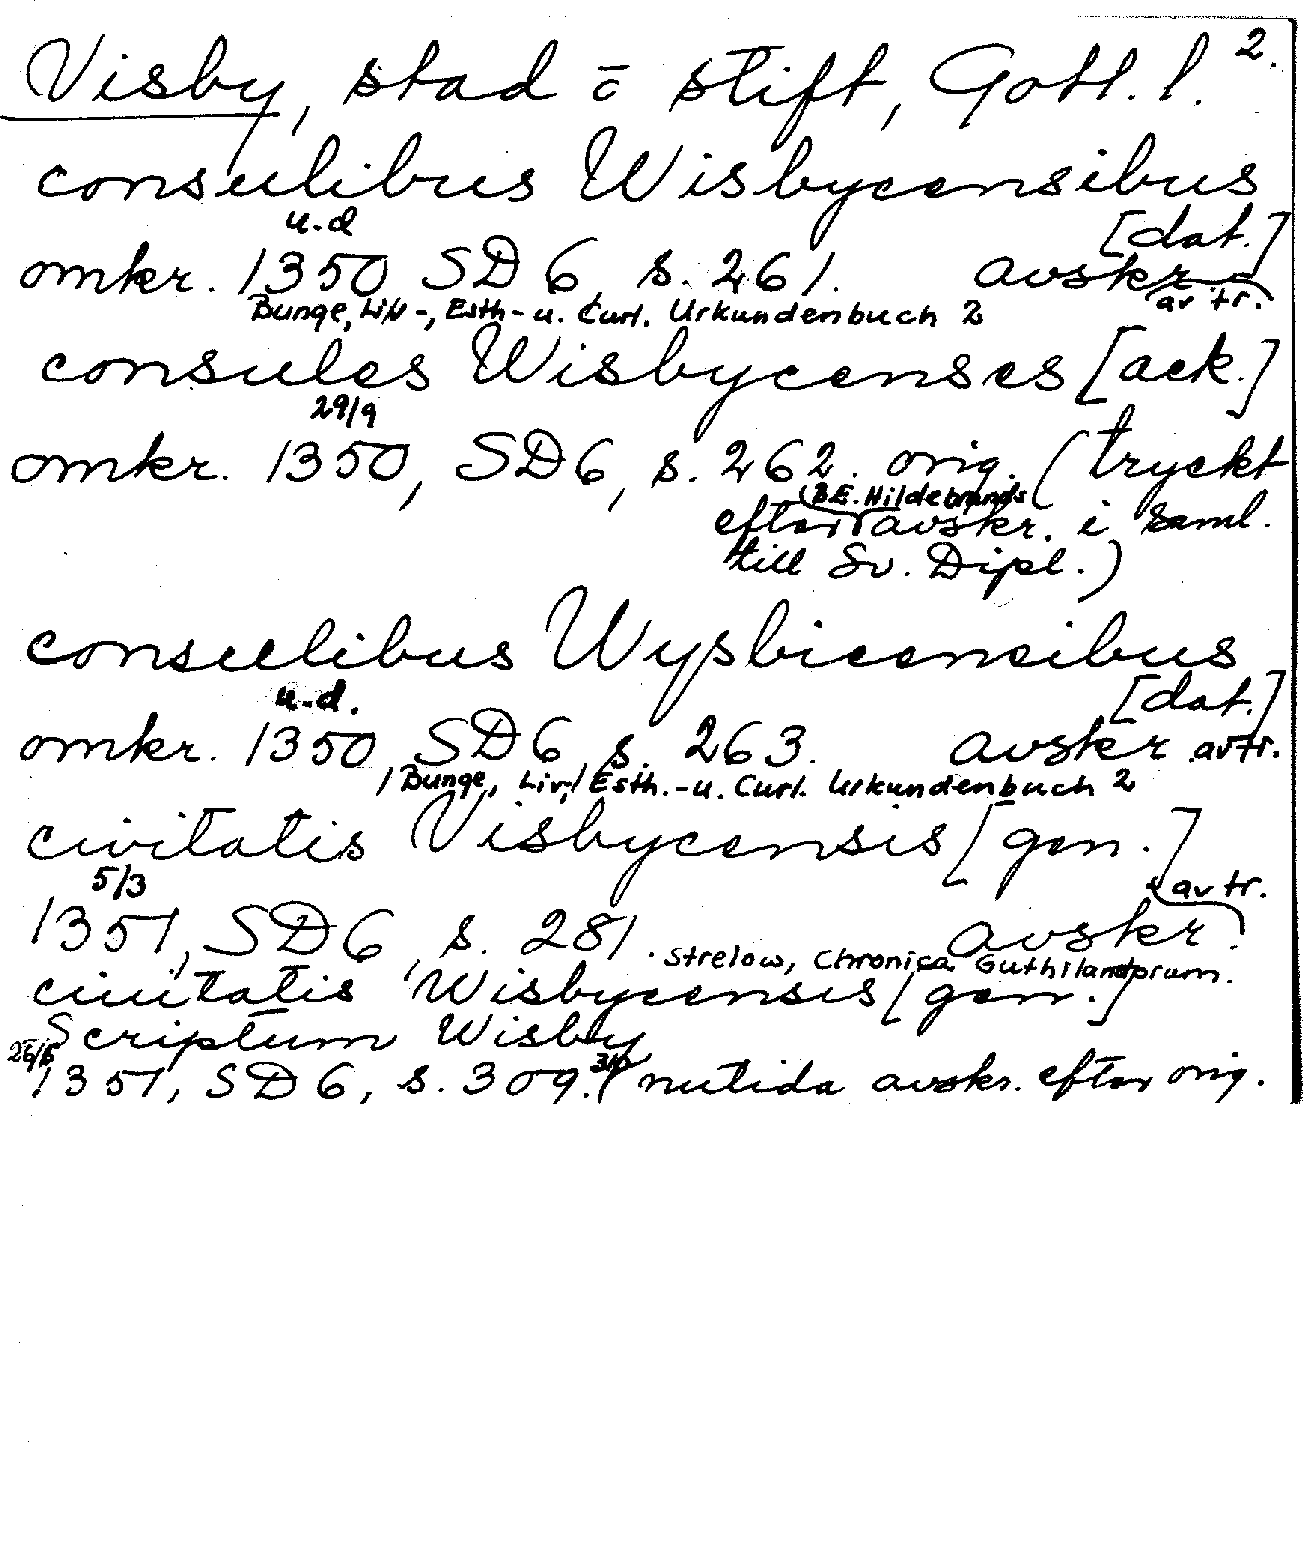 Visby, stad o stift, Gotl. l. 2.
consulibus Wisbycensibus
u.d [dat.]
omkr. 1350, SD 6, s. 261. avskr. av tr.
Bunge, Liv-, Esth- u. Curl. Urkundenbuch 2
consules Wisbycenses [ack.]
29/9
omkr. 1350, SD 6, s. 262. orig. (tryckt
efter B.E. Hildebrands avskr. i saml.
till Sv. Dipl.)
consulibus Wysbicencibus
u.d. [dat.]
omkr. 1350, SD 6, s. 263. avskr av tr.
/Bunge, Liv-/ Esth.-u. Curl. Urkundenbuch 2
civitatis Visbycensis [gen.]
5/3 av tr.
1351, SD 6, s. 281. avskr.
Strelow, Chronica Guthilandorum.
ciuitatis Wisbycensis [gen.]
Scriptum Wisby
1351, SD 6, s. 309. (nutida avskr. efter orig.